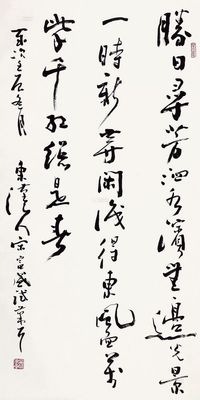 勝日尋芳泗水濱無邊光景
一時新等閑識得東風面萬
紫千紅總是春